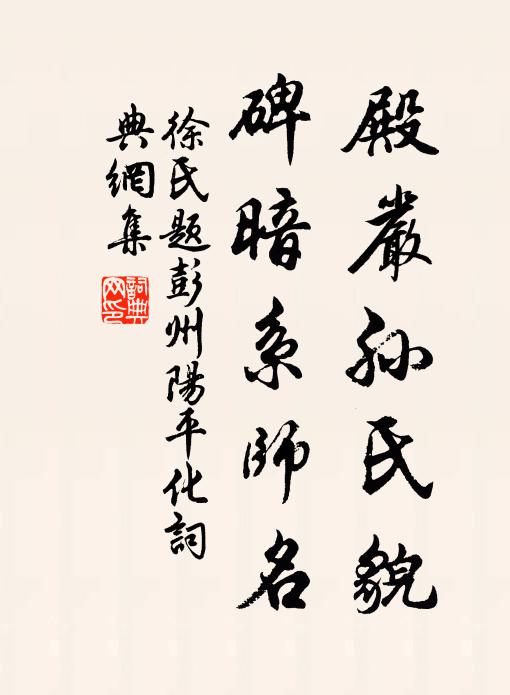 殿嚴孫氏貌
碑暗系師名
徐氏題彭州陽平化詞
典網集
詞典
网印